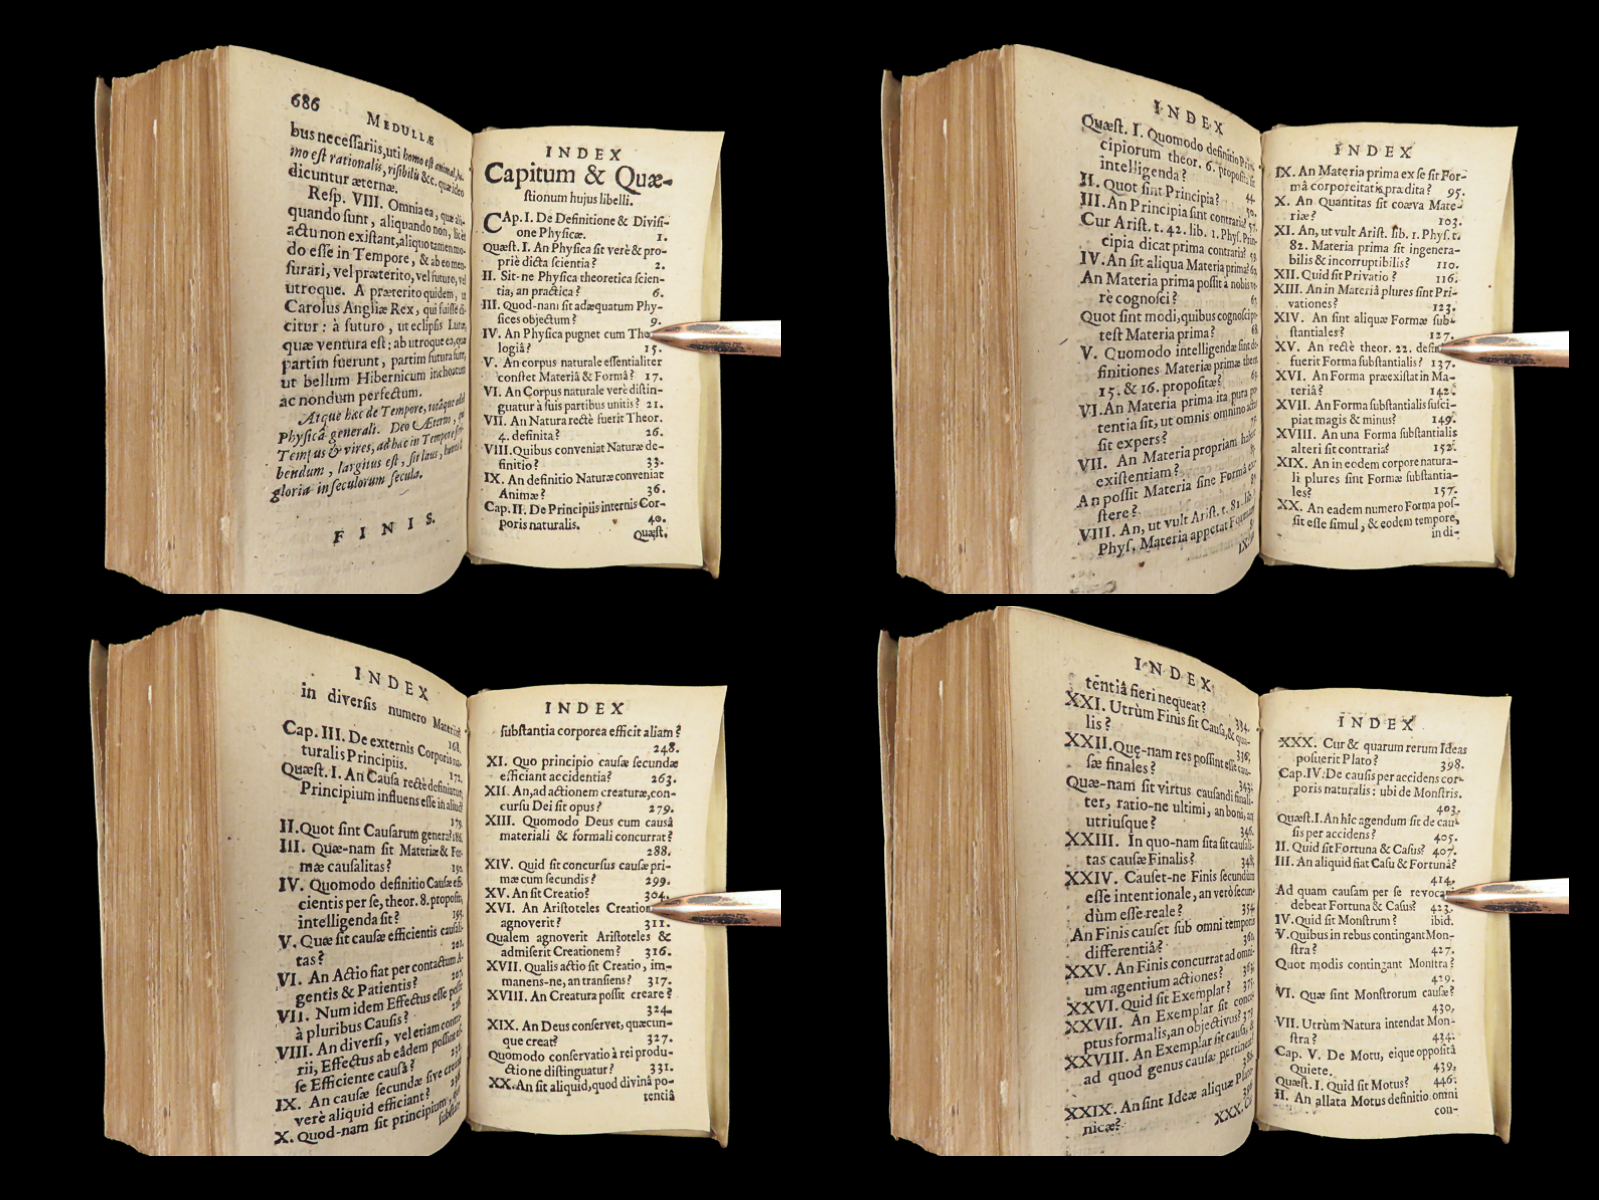 686 MEDULLÆ
bus necessariis, uti homo est animal, ho-
mo est rationalis, risibilis &c. quæ ideo
dicuntur æternæ.
Resp. VIII. Omnia ea, quæ ali-
quando sunt, aliquando non, licèt
actu non existant, aliquo tamen mo-
do esse in Tempore, & ab eo men-
surari, vel præterito, vel futuro, vel
utroque. A præterito quidem, ut
Carolus Angliæ Rex, qui fuisse di-
citur: à futuro, ut eclipsis Lunæ,
quæ ventura est: ab utroque ea, quæ
partim fuerunt, partim futura sunt,
ut bellum Hibernicum inchoatum
ac nondum perfectum.
Atque hæc de Tempore, totâque
Physicâ generali. Deo Æterno, qui
Tempus & vires, ad hæc in Tempore
bendum, largitus est, sit laus,
gloria in seculorum secula.
FINIS.
INDEX
Capitum & Quæ-
stionum hujus libelli.
CAp. I. De Definitione & Divisi-
one Physicæ. 1.
Quæst. I. An Physica sit verè & pro-
priè dicta scientia? 2.
II. Sit-ne Physica theoretica scien-
tia, an practica? 6.
III. Quod-nam sit adæquatum Phy-
sices objectum? 9.
IV. An Physica pugnet cum Theo-
logiâ? 15.
V. An corpus naturale essentialiter
constet Materiâ & Formâ? 17.
VI. An Corpus naturale verè distin-
guatur à suis partibus unitis? 21.
VII. An Natura rectè fuerit Theor.
4. definita? 26.
VIII. Quibus conveniat Naturæ de-
finitio? 33.
IX. An definitio Naturæ conveniat
Animæ? 36.
Cap. II. De Principiis internis Cor-
poris naturalis. 40.
Quæst.
INDEX
Quæst. I. Quomodo definitio Prin-
cipiorum theor. 6. proposita sit
intelligenda? 44.
II. Quot sint Principia? 50.
III. An Principia sint contraria? 57.
Cur Arist. t. 42. lib. 1. Phys. Prin-
cipia dicat prima contraria? 59.
IV. An sit aliqua Materia prima? 60.
An Materia prima possit à nobis ve-
rè cognosci?
Quot sint modi, quibus cognosci po-
test Materia prima? 68.
V. Quomodo intelligendæ sint de-
finitiones Materiæ primæ theor.
15. & 16. propositæ?
VI. An Materia prima ita pura po-
tentia sit, ut omnis omnino actus
sit expers?
VII. An Materia propriam habeat
existentiam?
An possit Materia sine Formâ exi-
stere?
VIII. An, ut vult Arist. t. 81. lib. 1.
Phys. Materia appetat Formam?
IX.
INDEX
IX. An Materia prima ex se sit For-
mâ corporeitatis prædita? 95.
X. An Quantitas sit coæva Mate-
riæ? 103.
XI. An, ut vult Arist. lib. 1. Phys. t.
82. Materia prima sit ingenera-
bilis & incorruptibilis? 110.
XII. Quid sit Privatio? 116.
XIII. An in Materiâ plures sint Pri-
vationes? 123.
XIV. An sint aliquæ Formæ sub-
stantiales? 127.
XV. An rectè theor. 22. definita
fuerit Forma substantialis? 137.
XVI. An Forma præexistat in Ma-
teriâ? 142.
XVII. An Forma substantialis susci-
piat magis & minus? 149.
XVIII. An una Forma substantialis
alteri sit contraria? 152.
XIX. An in eodem corpore natura-
li plures sint Formæ substantia-
les? 157.
XX. An eadem numero Forma pos-
sit esse simul, & eodem tempore,
in di-
INDEX
in diversis numero Materiis?
161.
Cap. III. De externis Corporis na-
turalis Principiis. 172.
Quæst. I. An Causa rectè definiatur,
Principium influens esse in aliud?
178.
II. Quot sint Causarum genera? 186.
III. Quæ-nam sit Materiæ & For-
mæ causalitas? 192.
IV. Quomodo definitio Causæ effi-
cientis per se, theor. 8. proposita,
intelligenda sit? 195.
V. Quæ sit causæ efficientis causali-
tas? 201.
VI. An Actio fiat per contactum A-
gentis & Patientis? 207.
VII. Num idem Effectus esse possit
à pluribus Causis?
VIII. An diversi, vel etiam contra-
rii, Effectus ab eâdem possint es-
se Efficiente causâ?
IX. An causæ secundæ sive creatæ
verè aliquid efficiant?
X. Quod-nam sit principium, quo
substan-
INDEX
substantia corporea efficit aliam?
248.
XI. Quo principio causæ secundæ
efficiant accidentia? 263.
XII. An, ad actionem creaturæ, con-
cursu Dei sit opus? 279.
XIII. Quomodo Deus cum causâ
materiali & formali concurrat?
288.
XIV. Quid sit concursus causæ pri-
mæ cum secundis? 299.
XV. An sit Creatio? 304.
XVI. An Aristoteles Creationem
agnoverit? 311.
Qualem agnoverit Aristoteles &
admiserit Creationem? 316.
XVII. Qualis actio sit Creatio, im-
manens-ne, an transiens? 317.
XVIII. An Creatura possit creare?
324.
XIX. An Deus conservet, quæcun-
que creat? 327.
Quomodo conservatio à rei produ-
ctione distinguatur? 331.
XX. An sit aliquid, quod divinâ po-
tentiâ
INDEX
tentiâ fieri nequeat? 334.
XXI. Utrùm Finis sit Causa, & qua-
lis? 336.
XXII. Quę-nam res possint esse cau-
sæ finales? 343.
Quæ-nam sit virtus causandi finali-
ter, ratio-ne ultimi, an boni, an
utriusque? 346.
XXIII. In quo-nam sita sit causali-
tas causæ Finalis? 348.
XXIV. Causet-ne Finis secundùm
esse intentionale, an verò secun-
dùm esse reale? 354.
An Finis causet sub omni temporis
differentiâ? 360.
XXV. An Finis concurrat ad omni-
um agentium actiones?
XXVI. Quid sit Exemplar?
XXVII. An Exemplar sit conce-
ptus formalis, an objectivus?
XXVIII. An Exemplar sit causa, &
ad quod genus causæ pertineat?
XXIX. An sint Ideæ aliquæ Plato-
nicæ?
XXX. Cur
INDEX
XXX. Cur & quarum rerum Ideas
posuerit Plato? 398.
Cap. IV. De causis per accidens cor-
poris naturalis: ubi de Monstris.
403.
Quæst. I. An hîc agendum sit de cau-
sis per accidens? 405.
II. Quid sit Fortuna & Casus? 407.
III. An aliquid fiat Casu & Fortunâ?
414.
Ad quam causam per se revocari
debeat Fortuna & Casus? 423.
IV. Quid sit Monstrum? ibid.
V. Quibus in rebus contingant Mon-
stra? 427.
Quot modis contingant Monstra?
429.
VI. Quæ sint Monstrorum causæ?
430.
VII. Utrùm Natura intendat Mon-
stra? 434.
Cap. V. De Motu, eique oppositâ
Quiete. 439.
Quæst. I. Quid sit Motus? 446.
II. An allata Motus definitio omni
con-